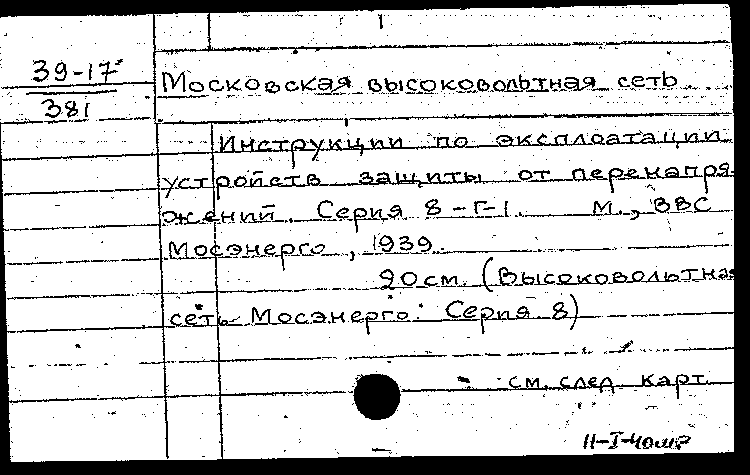 39-17
381
Московская высоковольтная сеть
Инструкции по эксплоатации
устройств защиты от перенапря-
жений. Серия 8-Г-1. М., ВВС
Мосэнерго, 1939.
20см. (Высоковольтная
сеть Мосэнерго: Серия 8)
см. след. карт.